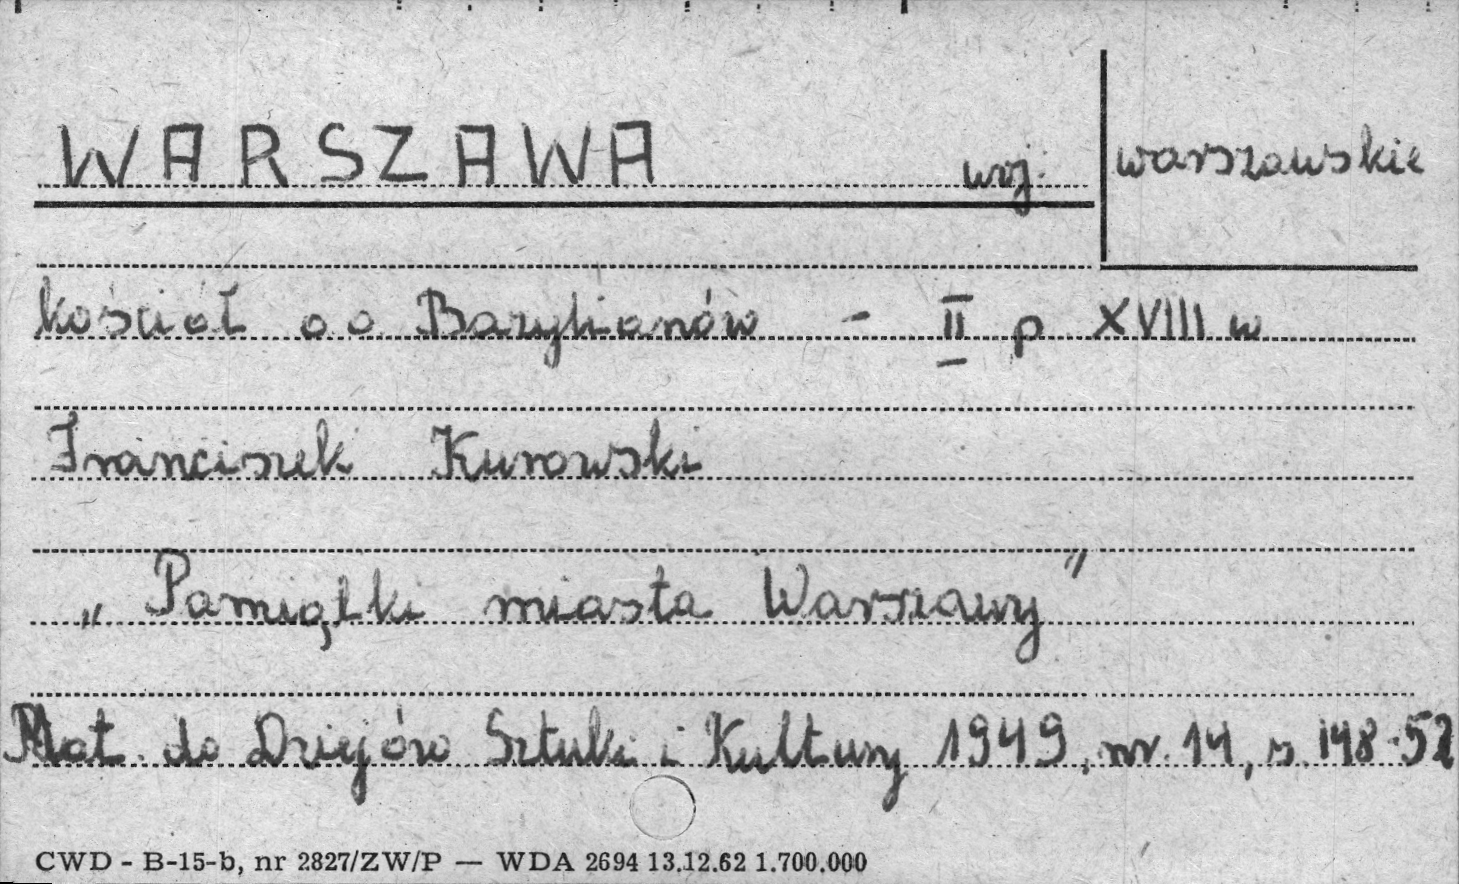 WARSZAWA woj. warszawskie
kościół oo Bazylianów - II p XVIII w
Franciszek Kurowski
„Pamiątki miasta Warszawy”
Mat. do Dziejów Sztuki i Kultury 1949, nr. 14, s. 148-52
CWD - B-15-b, nr 2827/ZW/P — WDA 2694 13.12.62 1.700.000